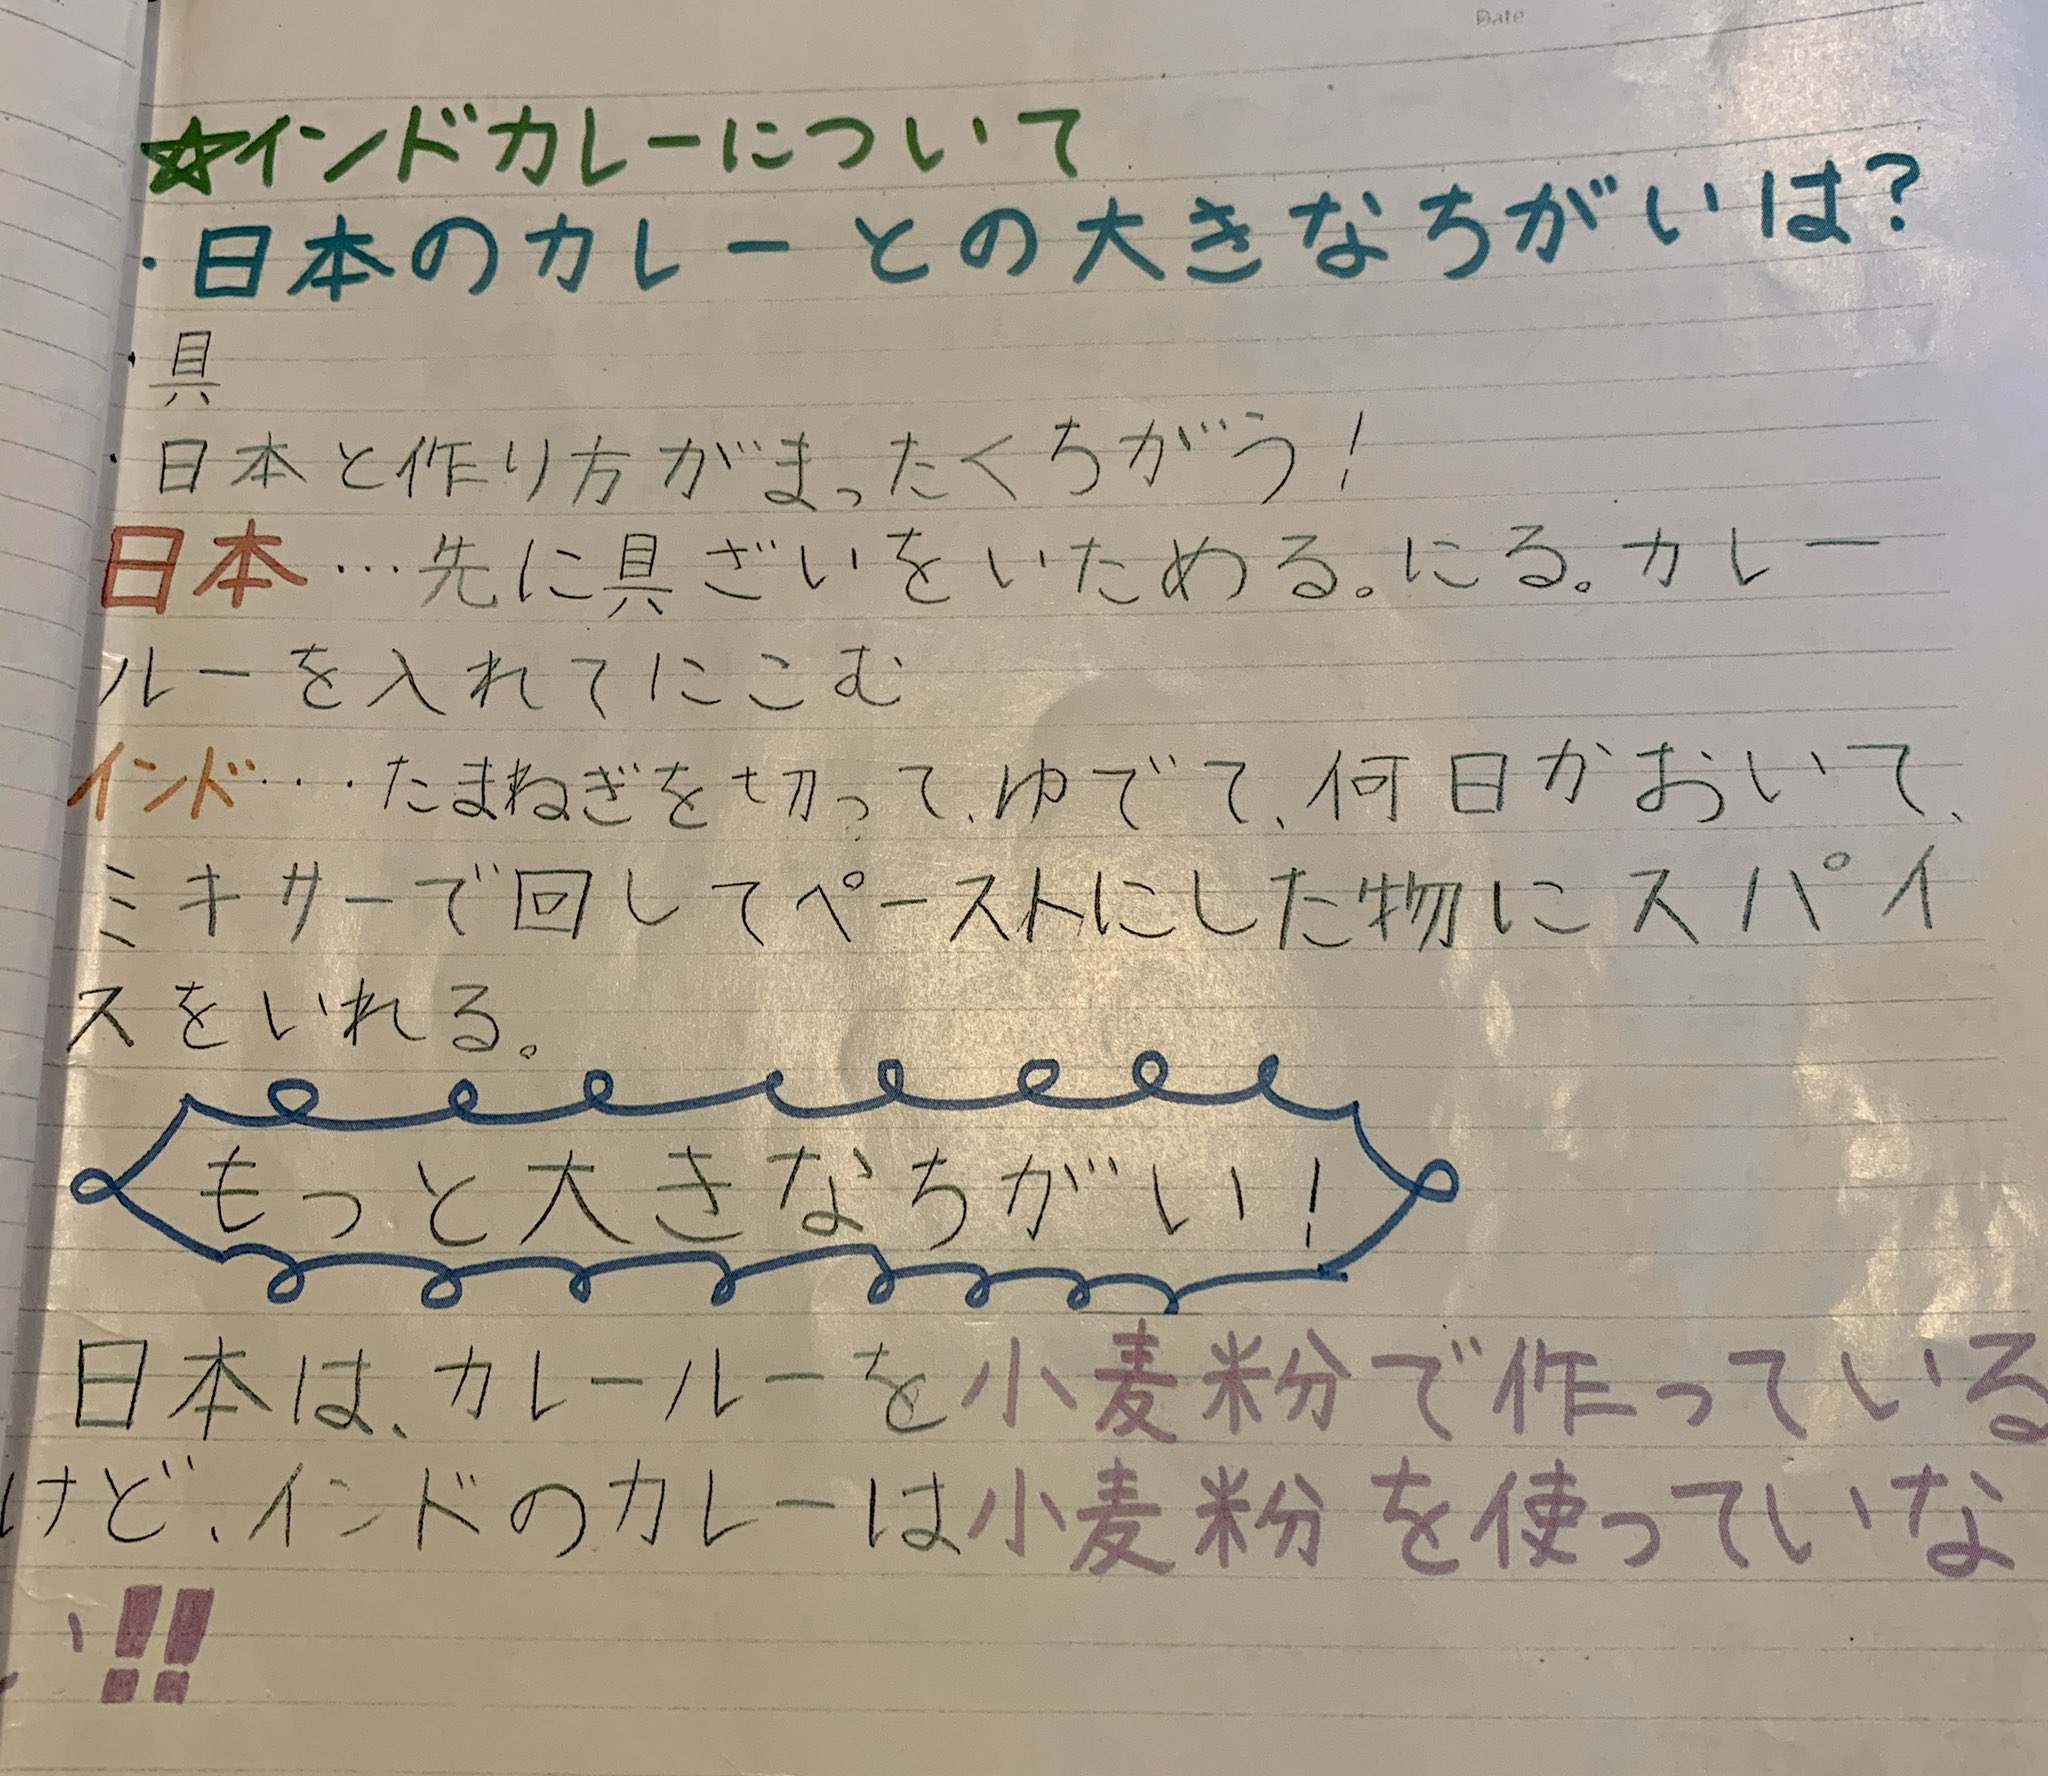 Date
☆インドカレーについて
・日本のカレーとの大きなちがいは?
・具
・日本と作り方がまったくちがう!
日本…先に具ざいをいためる。にる。カレー
ルーを入れてにこむ
インド…たまねぎを切って、ゆでて、何日かおいて、
ミキサーで回してペーストにした物にスパイ
スをいれる。
もっと大きなちがい!
日本は、カレールーを小麦粉で作っている
けど、インドのカレーは小麦粉を使っていな
い!!